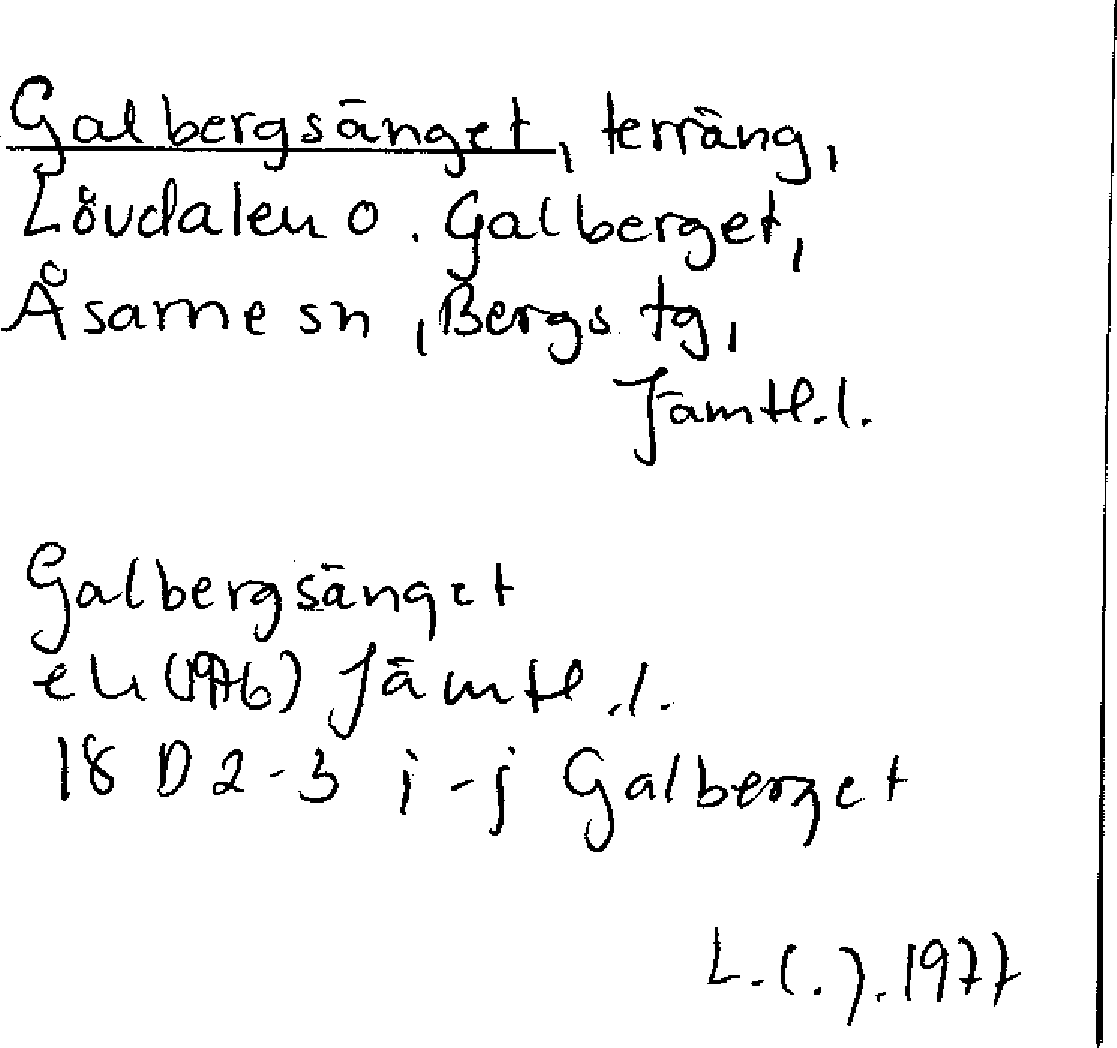 Galbergsänget, terräng,
Lövdalen o. Galberget,
Åsarne sn, Bergs tg,
Jämtl. l.
Galbergsänget
ek (1976) Jämtl. l.
18 D 2-3 i-j Galberget
1977